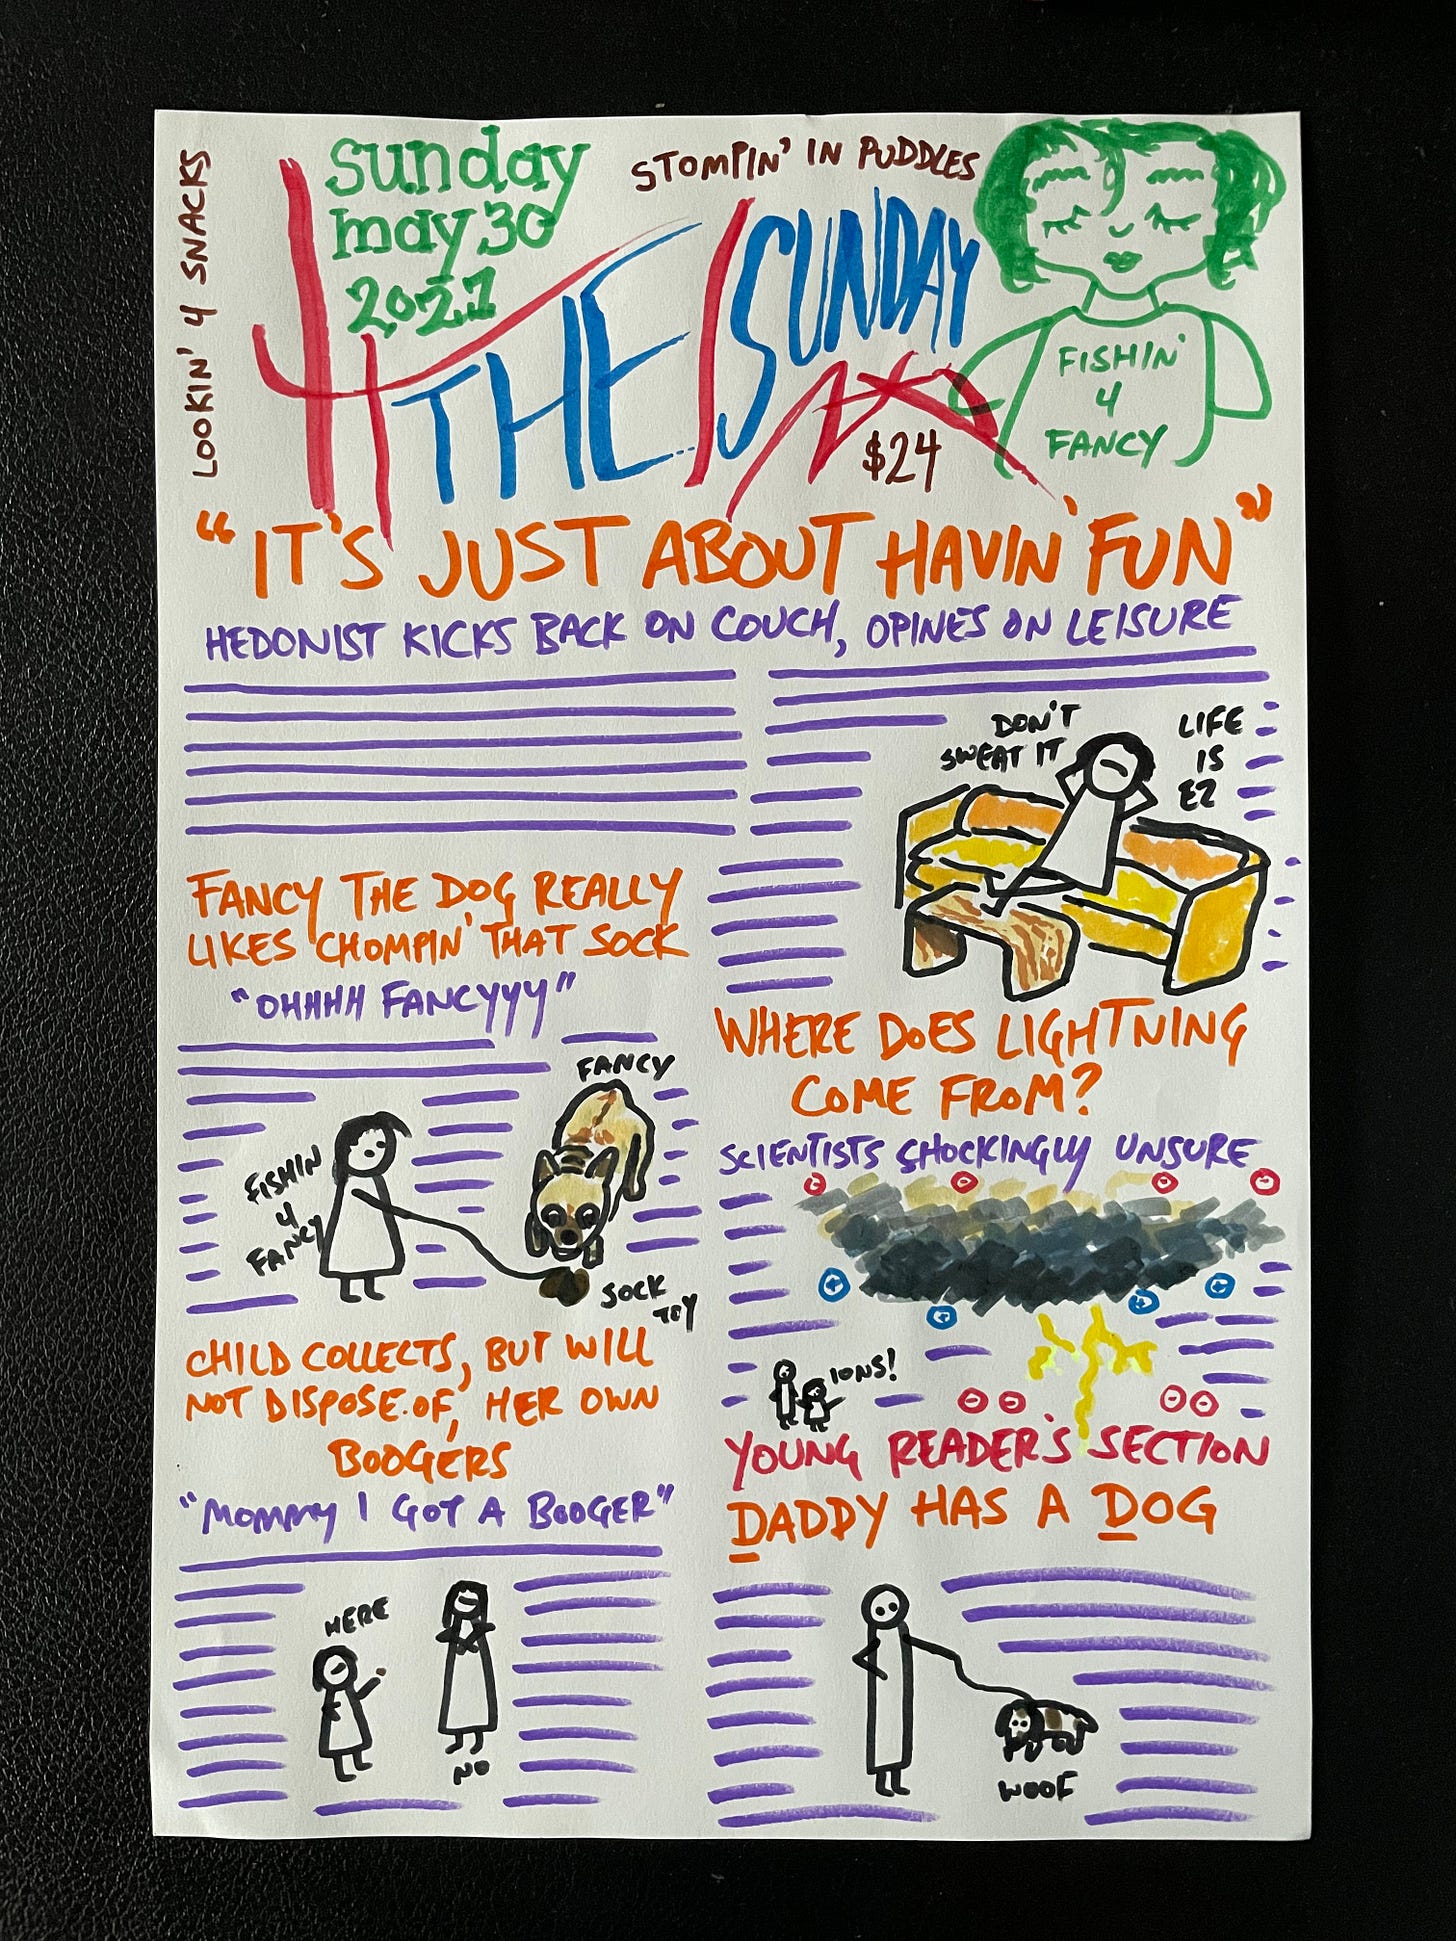 LOOKIN' 4 SNACKS
sunday
may 30
2021
STOMPIN' IN PUDDLES
THE SUNDAY
$24
FISHIN'
4
FANCY
"IT'S JUST ABOUT HAVIN' FUN"
HEDONIST KICKS BACK ON COUCH, OPINES ON LEISURE
DON'T
SWEAT IT
LIFE
IS
EZ
FANCY THE DOG REALLY
LIKES CHOMPIN' THAT SOCK
"OHHHH FANCYYYY"
FANCY
FISHIN
4
FANCY
SOCK
TOY
CHILD COLLECTS, BUT WILL
NOT DISPOSE OF, HER OWN
BOOGERS
"MOMMY I GOT A BOOGER"
HERE
NO
WHERE DOES LIGHTNING
COME FROM?
SCIENTISTS SHOCKINGLY UNSURE
IONS!
YOUNG READER'S SECTION
DADDY HAS A DOG
WOOF